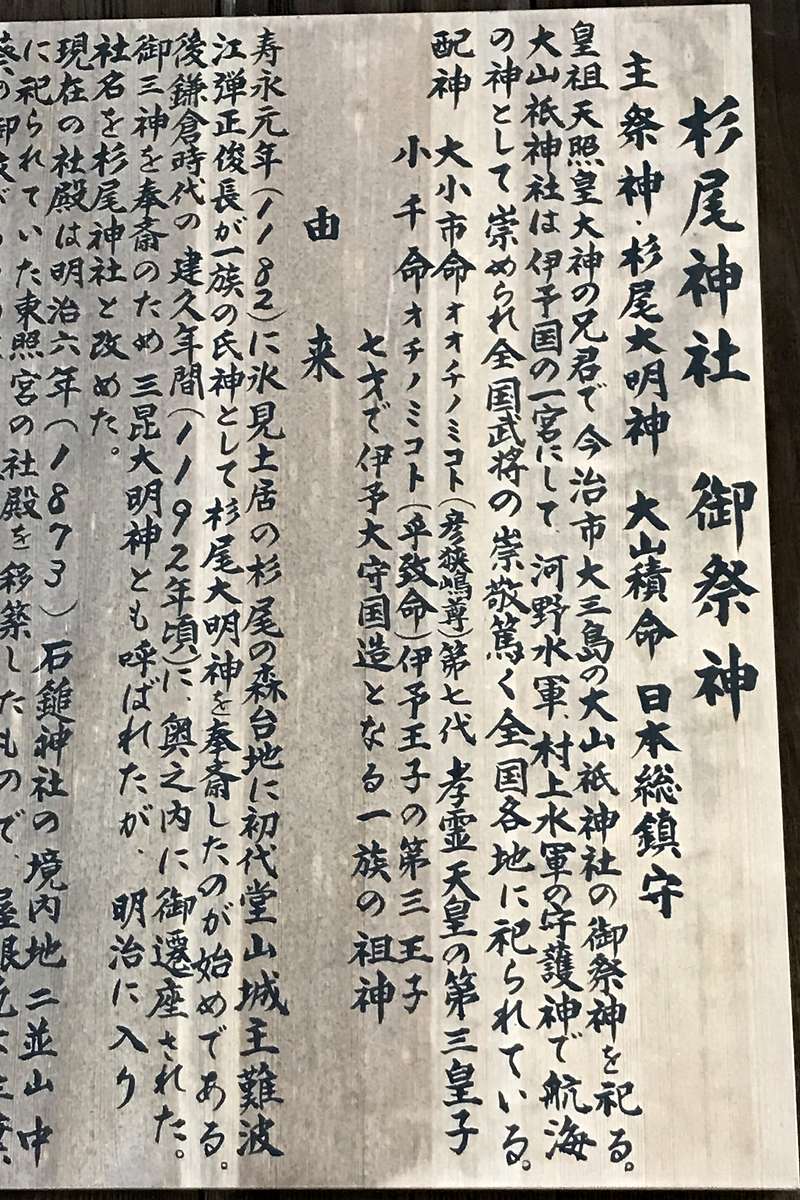 杉尾神社 御祭神
主祭神・杉尾大明神 大山積命 日本総鎮守
皇祖天照皇大神の兄君で今治市大三島の大山祇神社の御祭神を祀る。
大山祇神社は伊予国の一宮にして、河野水軍、村上水軍の守護神で航海
の神として崇められ全国武将の崇敬篤く全国各地に祀られている。
配神 大小市命オオチノミコト(彦狭嶋尊)第七代 孝霊天皇の第三皇子
小千命オチノミコト(乎致命)伊予王子の第三王子
七才で伊予大守国造となる一族の祖神
由来
寿永元年(1182)に氷見土居の杉尾の森台地に初代堂山城主難波
江弾正俊長が一族の氏神として杉尾大明神を奉斎したのが始めである。
後鎌倉時代の建久年間(1192年頃)に、奥之内に御遷座された。
御三神を奉斎のため三昆大明神とも呼ばれたが、明治に入り
社名を杉尾神社と改めた。
現在の社殿は明治六年(1873)石鎚神社の境内地二並山中
に祀られていた東照宮の社殿を移築したもので、屋根